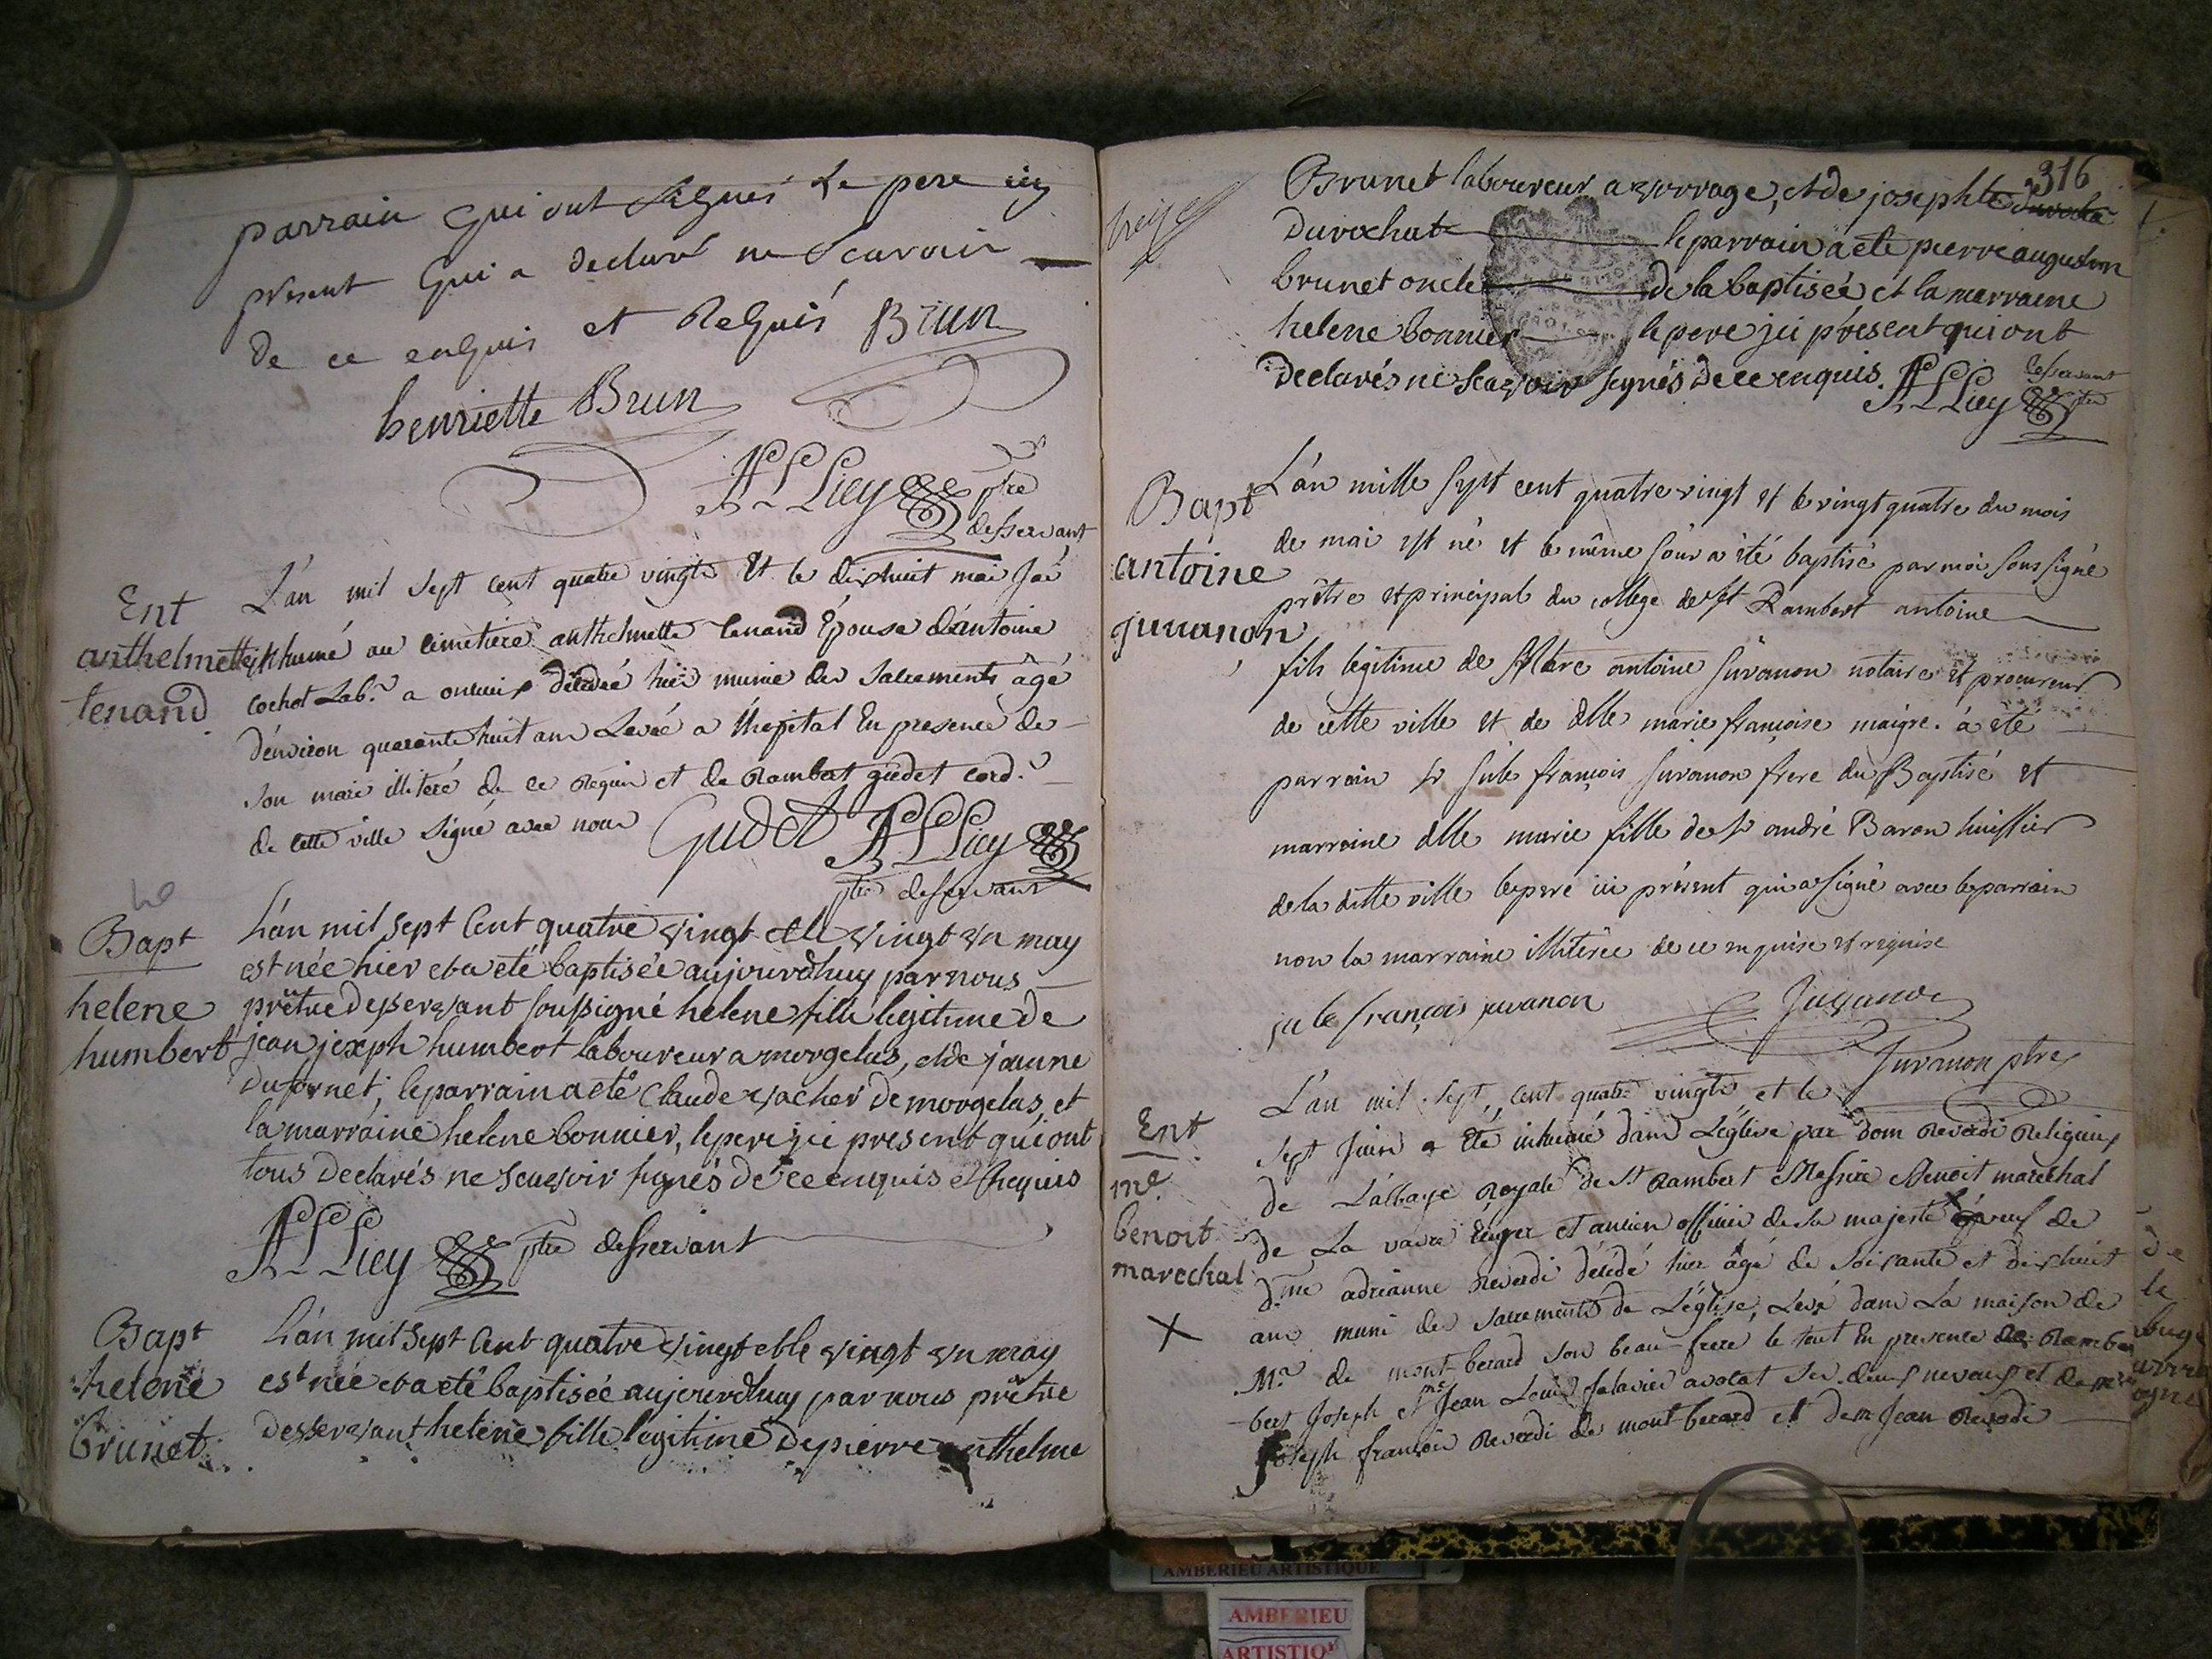 parrain qui ont signés le pere icy
présent qui a declaré ne scavoir
de ce enquis et Requis Brun
henriette Brun
ptre
desservant
Ent
anthelmette
tenand
L'an mil sept cent quatre vingts Et le dixhuit mai faé
inhumé au cimetiere anthelmette tenand Épouse d'antoine
cochet Lab.r a décédée hier munie des sacrements âgé
d'environ quarante huit ans Levée a l'hopital En presence de
son mari illiteré de ce Requis et de Rambert gudet cord.r
de cette ville signé avec nous Gudet
ptre desservant
Bapt
helene
humbert
L'an mil sept Cent quatre vingt et le vingt un may
est née hier et a eté baptisée aujourdhuy par nous
prêtre desservant soussigné helene fille legitime de
jean joseph humbert laboureur a morgelas, et de jeanne
dufornet, le parrain a eté Claude vacher de morgelas, et
la marraine helene bonnier, le pere ici present qui ont
tous declarés ne scavoir signés de ce enquis et requis
ptre desservant
Bapt
helene
brunet
L'an mil sept Cent quatre vingt et le vingt un may
est née et a eté baptisée aujourdhuy par nous prêtre
desservant helene fille legitime de pierre anthelme
316
Brunet laboureur a vorrage, et de josephte
durochat le parrain a eté pierre augustin
brunet oncle de la baptisée et la marraine
helene bonnier le pere ici présent qui ont
declarés ne scavoir signés de ce enquis.
desservant
ptre
Bapt
antoine
juvanon
L'an mille sept cent quatre vingt et le vingt quatre du mois
de mai est né et le même jour a été baptisé par moi soussigné
prêtre et principal du college de st Rambert antoine
fils legitime de Mtre antoine juvanon notaire et procureur
de cette ville et de dlle marie françoise maigre. a été
parrain sr jule françois juvanon frere du Baptisé et
marraine dlle marie fille de sr andré Baron huissier
de la ditte ville le pere ici présent qui a signé avec le parrain
non la marraine illiterée de ce enquise et requise
jule françois juvanon Juvanon
Juvanon ptre
Ent
me
benoit
marechal
X
L'an mil sept cent quatre vingts et le
sept juin a été inhumé dans L'église par dom Reverdi Religieux
de L'abbaye Royale de St Rambert Messire Benoit maréchal
de La vavre Ecuyer et ancien officier de sa majesté veuf de
dme adrianne Reverdi décédé hier âgé de soixante et dixhuit
ans muni des sacrements de L'église, Levé dans La maison de
Mr de mont berard son beau frere le tout En presence de Ram
bert Joseph et Jean Louis falavier avocat ses deux neveux et de
joseph françois Reverdi de mont berard et de mr Jean Reverdi
AMBERIEU ARTISTIQUE
AMBERIEU
ARTISTIQ